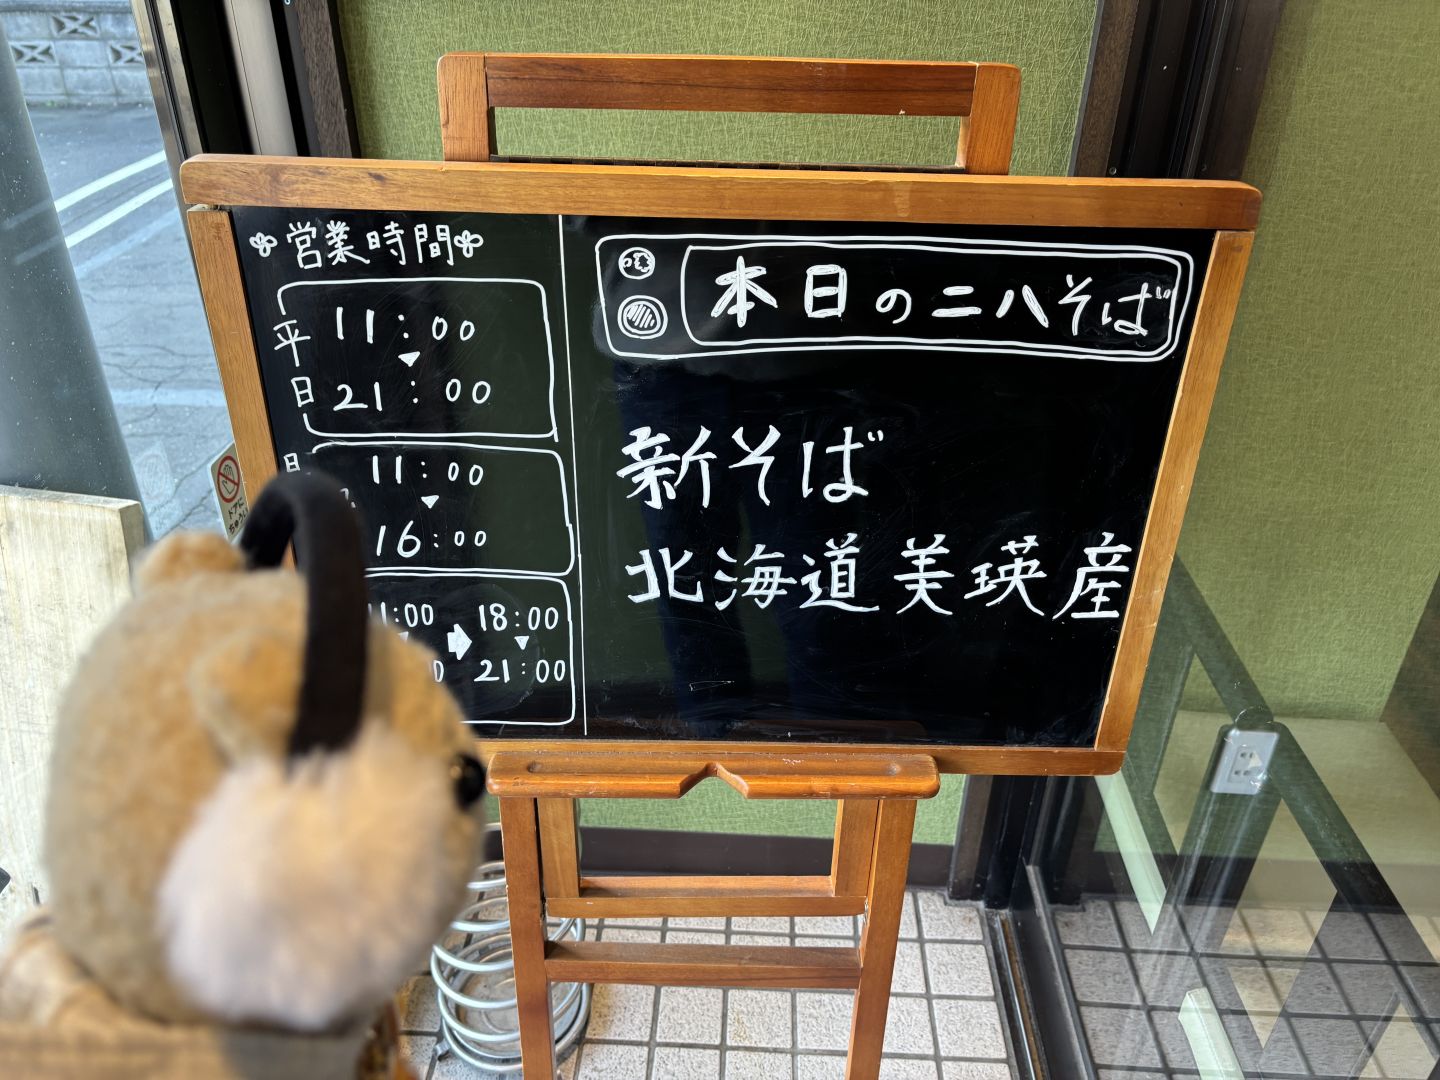 営業時間
平日
11:00
21:00
11:00
16:00
18:00
21:00
本日の二八そば
新そば
北海道美瑛産
ドアに